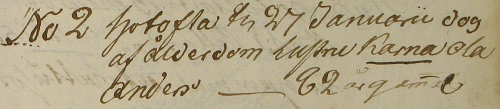 No 2 hofsta den 27 Januarii dog
af ålderdom hustru Karna Ola
Anders — 62 år gam̄al